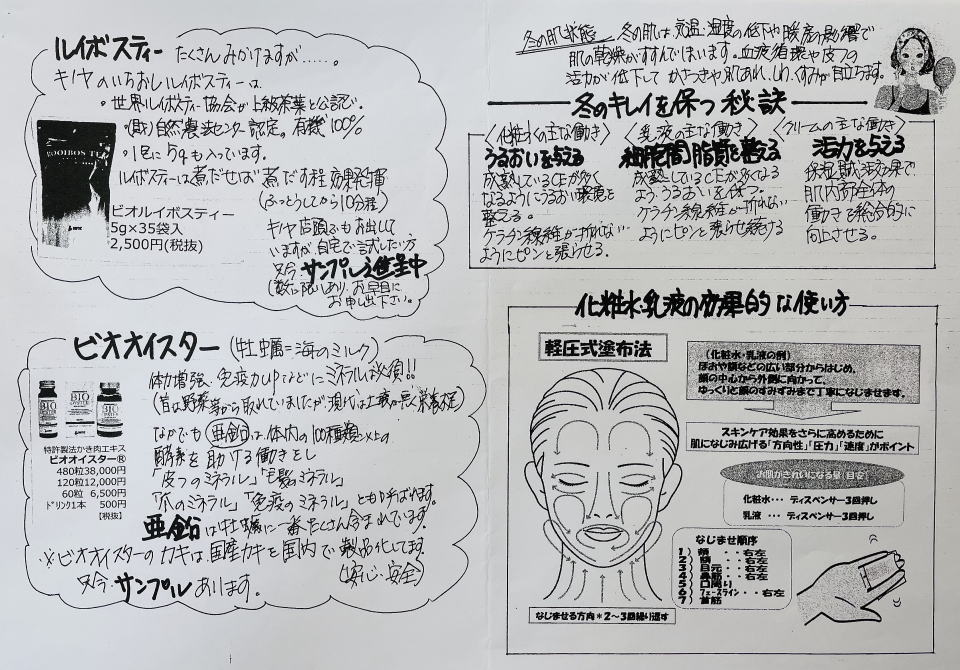 ルイボスティー たくさんみかけますが……。
キノヤのいちおしルイボスティーは
・世界ルイボスティー協会が上級茶葉と公認で、
・(財)自然農法センター認定。有機100%
・1包に5gも入っています。
ルイボスティーは煮だせば煮だす程効果発揮
(ふっとうしてから10分程)
ROOIBOS TEA
ビオルイボスティー
5g×35袋入
2,500円(税抜)
キノヤ店頭でもお出しして
いますが、自宅で試したい方
只今サンプル進呈中
(数に限りあり。お早目に
お申し出下さい。)
ビオオイスター (牡蠣=海のミルク)
体力増強、免疫力upなどにミネラルは必須!!
(昔は野菜等から取れていましたが現代は土壌が悪く栄養不足)
なかでも亜鉛は、体内の100種類以上の
酵素を助ける働きをし
「皮フのミネラル」「毛髪のミネラル」
「爪のミネラル」「免疫のミネラル」ともよばれます。
BIO
特許製法かき肉エキス
ビオオイスター®
480粒38,000円
120粒12,000円
60粒 6,500円
ドリンク1本 500円
【税抜】
亜鉛は牡蠣に一番たくさん含まれています。
※ビオオイスターのカキは、国産カキを国内で製品化してます。
(安心・安全)
只今サンプルあります。
冬の肌状態 冬の肌は、気温・湿度の低下や暖房の影響で
肌の乾燥がすすんでしまいます。血液循環や皮フの
活力が低下して かさつきや肌あれ、しわ、くすみが目立ちます。
冬のキレイを保つ秘訣
〈化粧水の主な働き〉
うるおいを与える
成熟しているCEが多く
なるようにうるおい環境を
整える。
ケラチン線維が折れない
ようにピンと張らせる。
〈乳液の主な働き〉
細胞間脂質を整える
成熟しているCEが多くなる
よう、うるおいを保つ。
ケラチン線維が折れない
ようにピンと張らせ続ける
〈クリームの主な働き〉
活力を与える
保湿・賦活効果で
肌内部全体の
働きを総合的に
向上させる。
化粧水・乳液の効果的な使い方
軽圧式塗布法
(化粧水・乳液の例)
ほおや額などの広い部分からはじめ、
顔の中心から外側に向かって、
ゆっくりと顔のすみずみまで丁寧になじませます。
スキンケア効果をさらに高めるために
肌になじみ広げる「方向性」「圧力」「速度」がポイント
お肌がきれいになる量(目安)
化粧水・・・ ディスペンサー3回押し
乳液 ・・・ ディスペンサー3回押し
なじませ順序
1)頬 ・・右左
2)額 ・・右左
3)目元・・右左
4)鼻筋・・右左
5)口周り
6)フェースライン・・右左
7)首筋
なじませる方向＊2～3回繰り返す